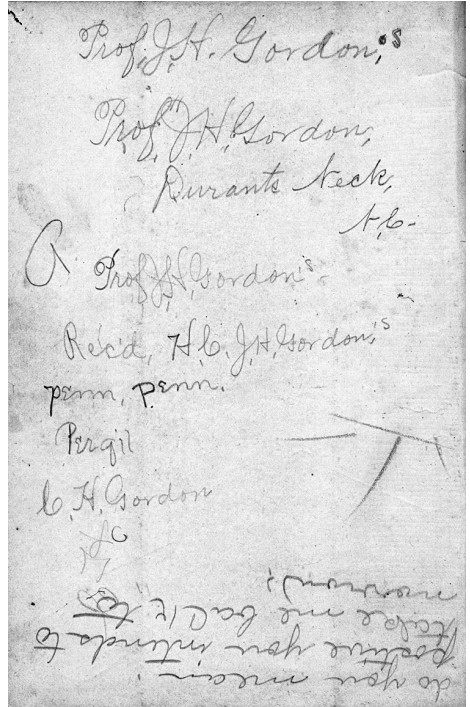 Prof. J. H. Gordon,'s
Prof. J. H. Gordon,
Durants Neck,
N.C.
Prof. J. H. Gordon's
Rec'd, H. C. J. H. Gordon,'s
penn, penn.
C. H. Gordon
do you mean
positive you intends to
take me back to